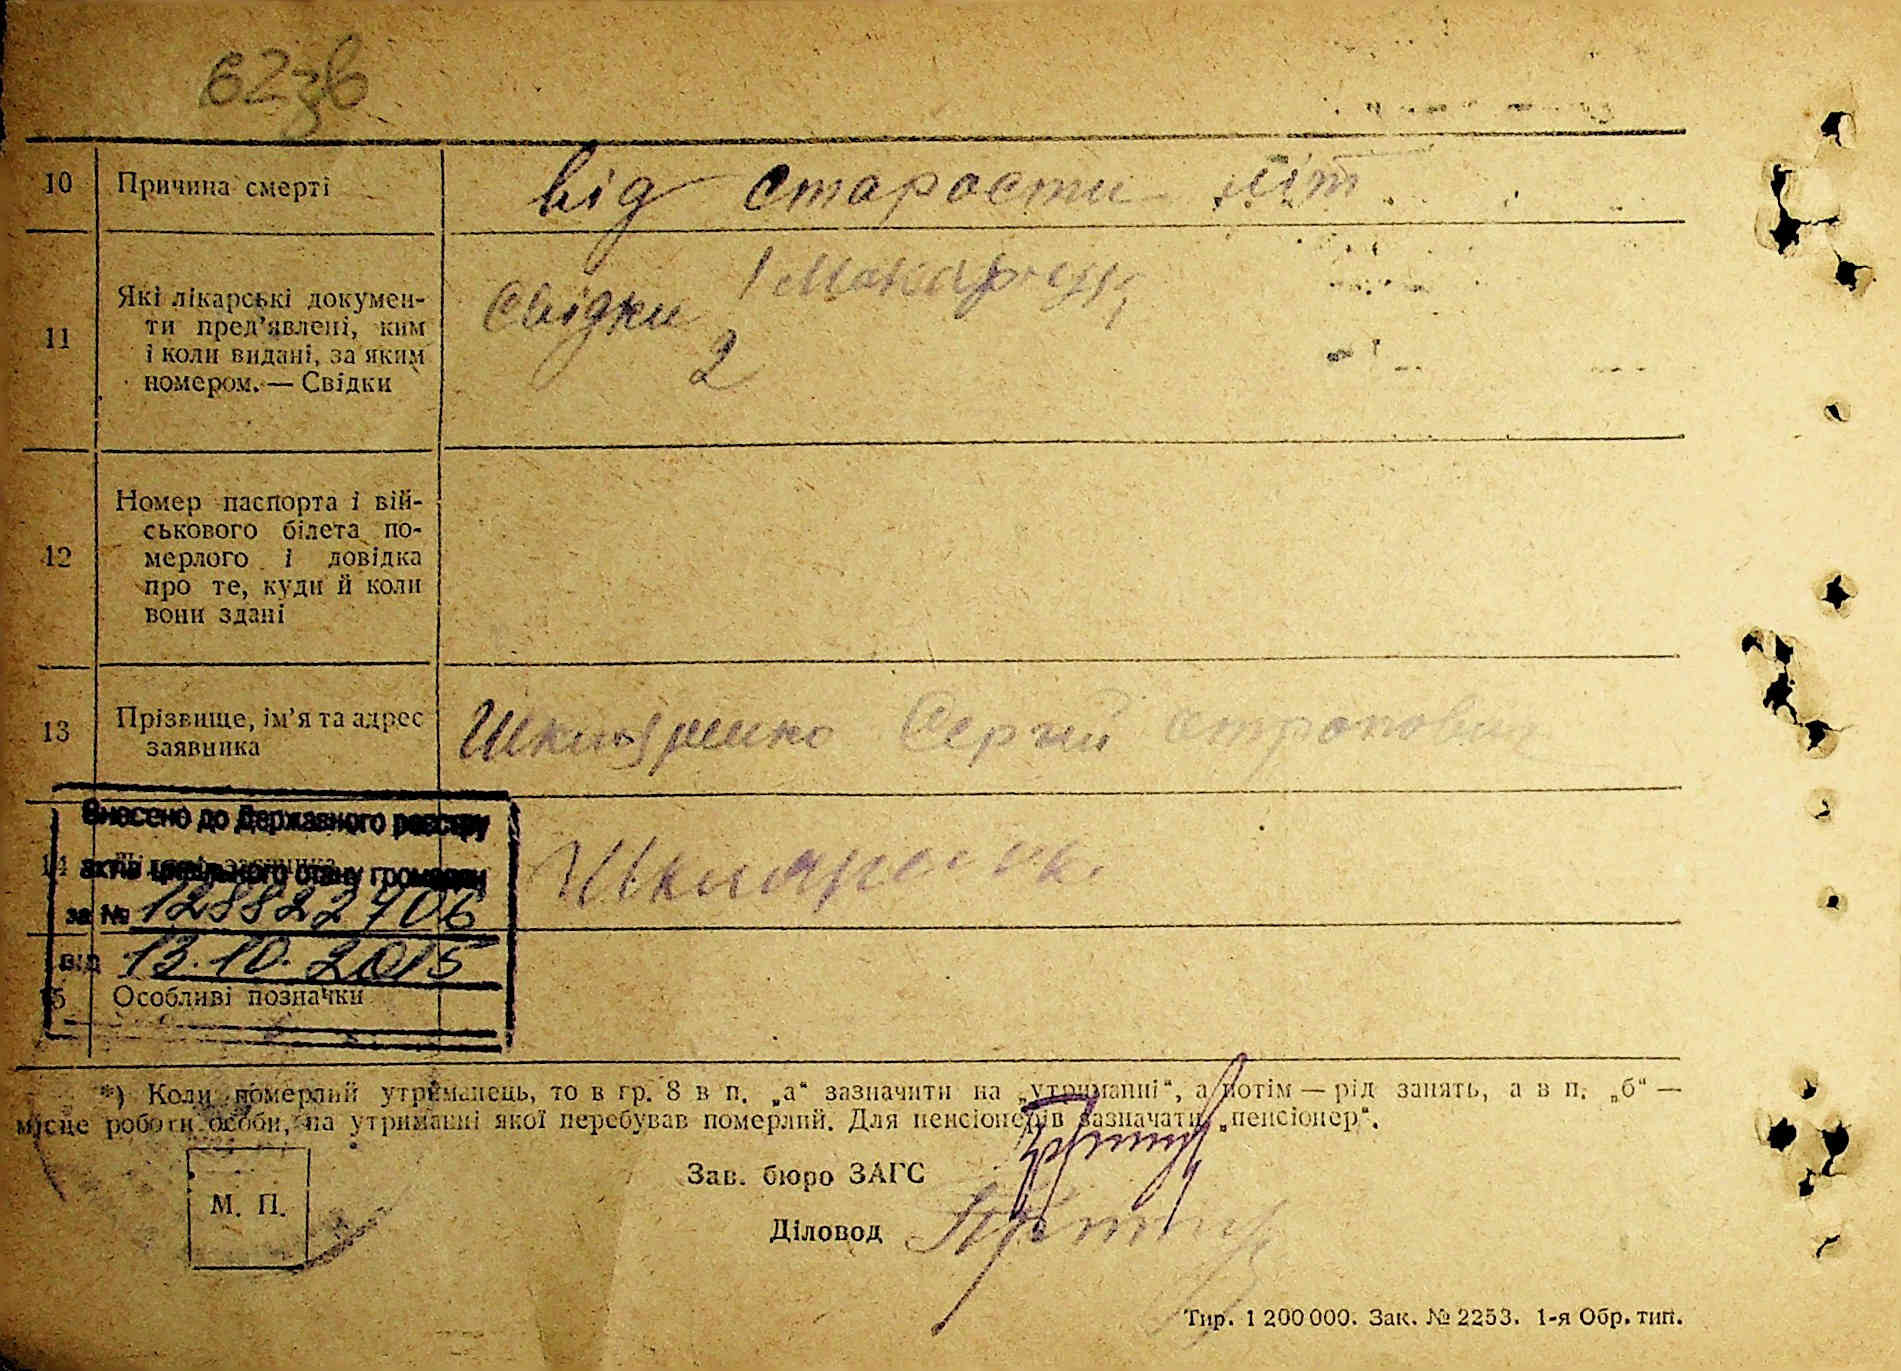 62зв
10 Причина смерті від старости літ
11 Які лікарські докумен-
ти пред’явлені, ким
і коли видані, за яким
номером. — Свідки
Свідки 1
2
12 Номер паспорта і вій-
ськового білета по-
мерлого і довідка
про те, куди й коли
вони здані
13 Прізвище, ім’я та адрес
заявника
Сергий
Внесено до Державного реєстру
14 актів цивільного стану громадян
за № 128822706
від 13.10.2015
15 Особливі позначки
*) Коли померлий утриманець, то в гр. 8 в п. „а“ зазначити на „утриманні“, а потім — рід занять, а в п. „б“ —
місце роботи особи, на утриманні якої перебував померлий. Для пенсіонерів зазначати „пенсіонер“.
М. П.
Зав. бюро ЗАГС
Діловод
Тир. 1 200 000. Зак. № 2253. 1-я Обр. тип.